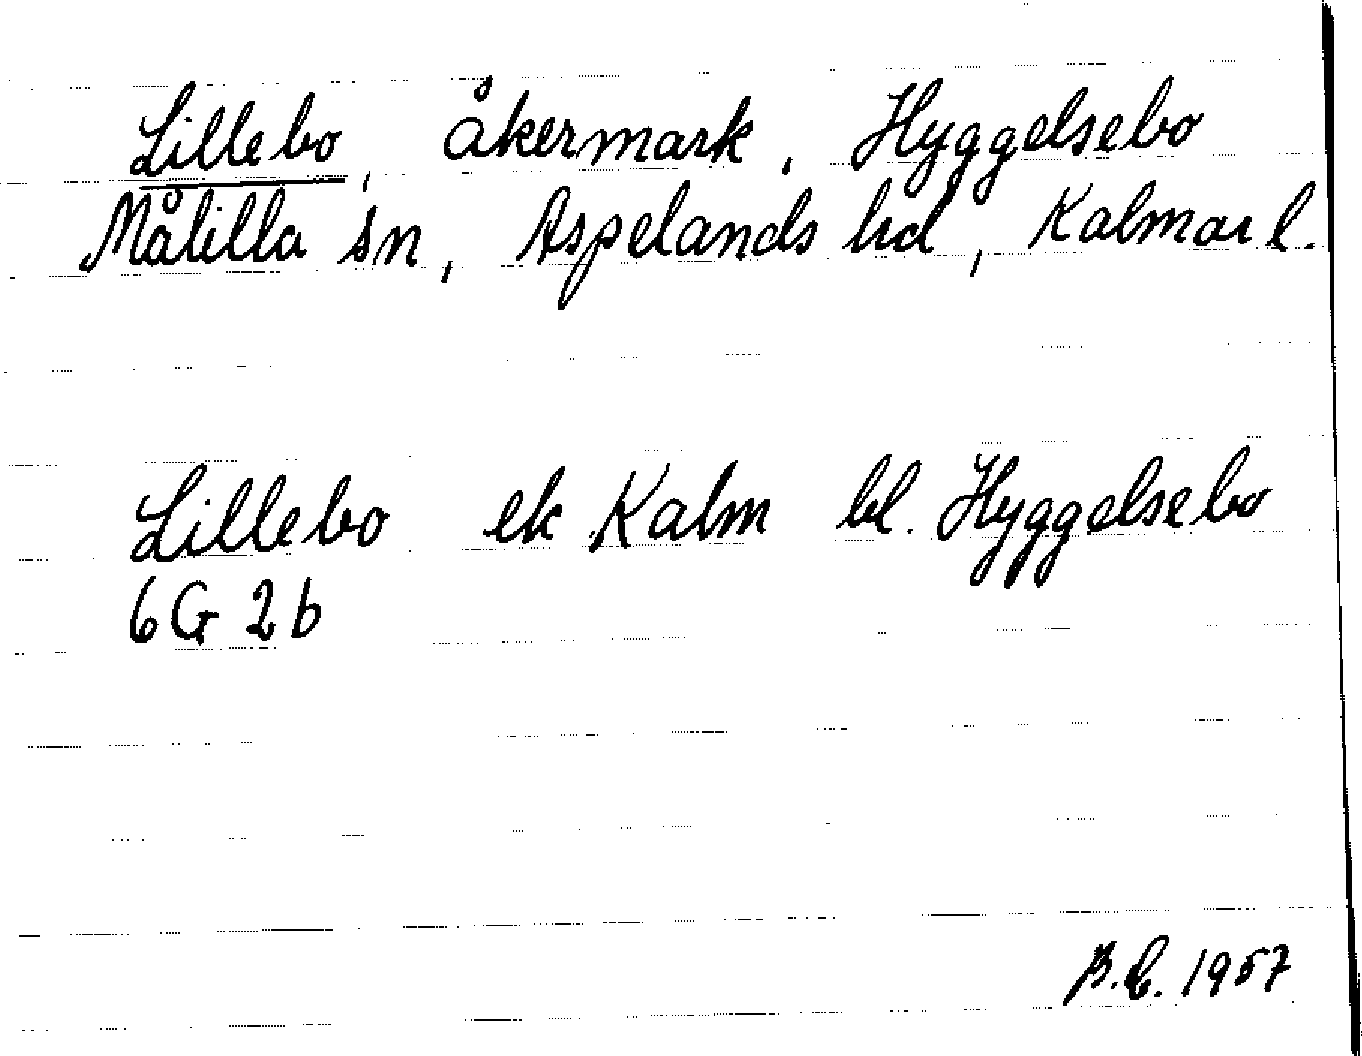 Lillebo, åkermark, Hyggelsebo
Målilla sn, Aspelands hd, Kalmar l.
Lillebo ek Kalm bl. Hyggelsebo
6G 2b
B.E. 1957